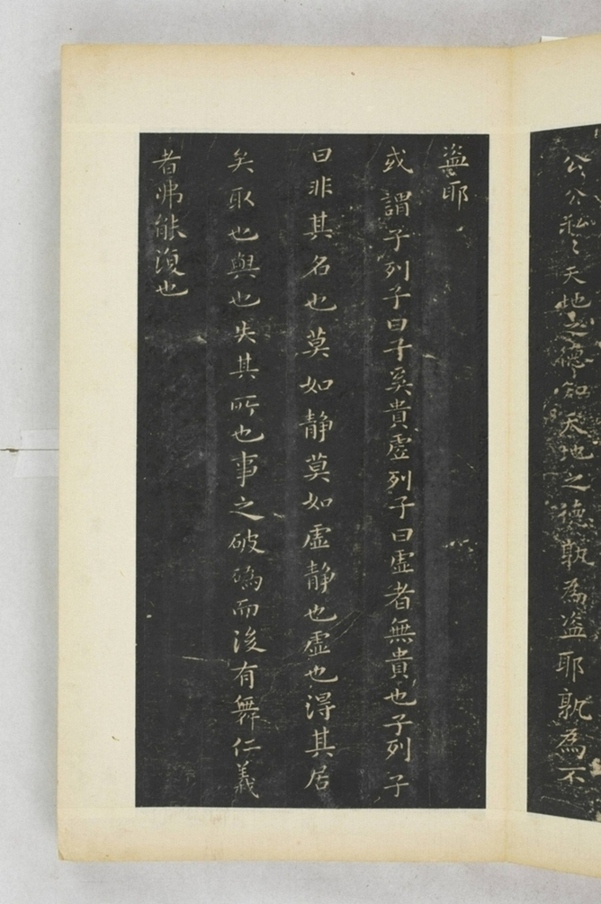 公公私私天地之德知天地之德孰為盜耶孰為不
盜耶
或謂子列子曰子奚貴虛列子曰虛者無貴也子列子
曰非其名也莫如静莫如虛静也虛也得其居
矣取也與也失其所也事之破䃣而後有舞仁義
者弗能復也